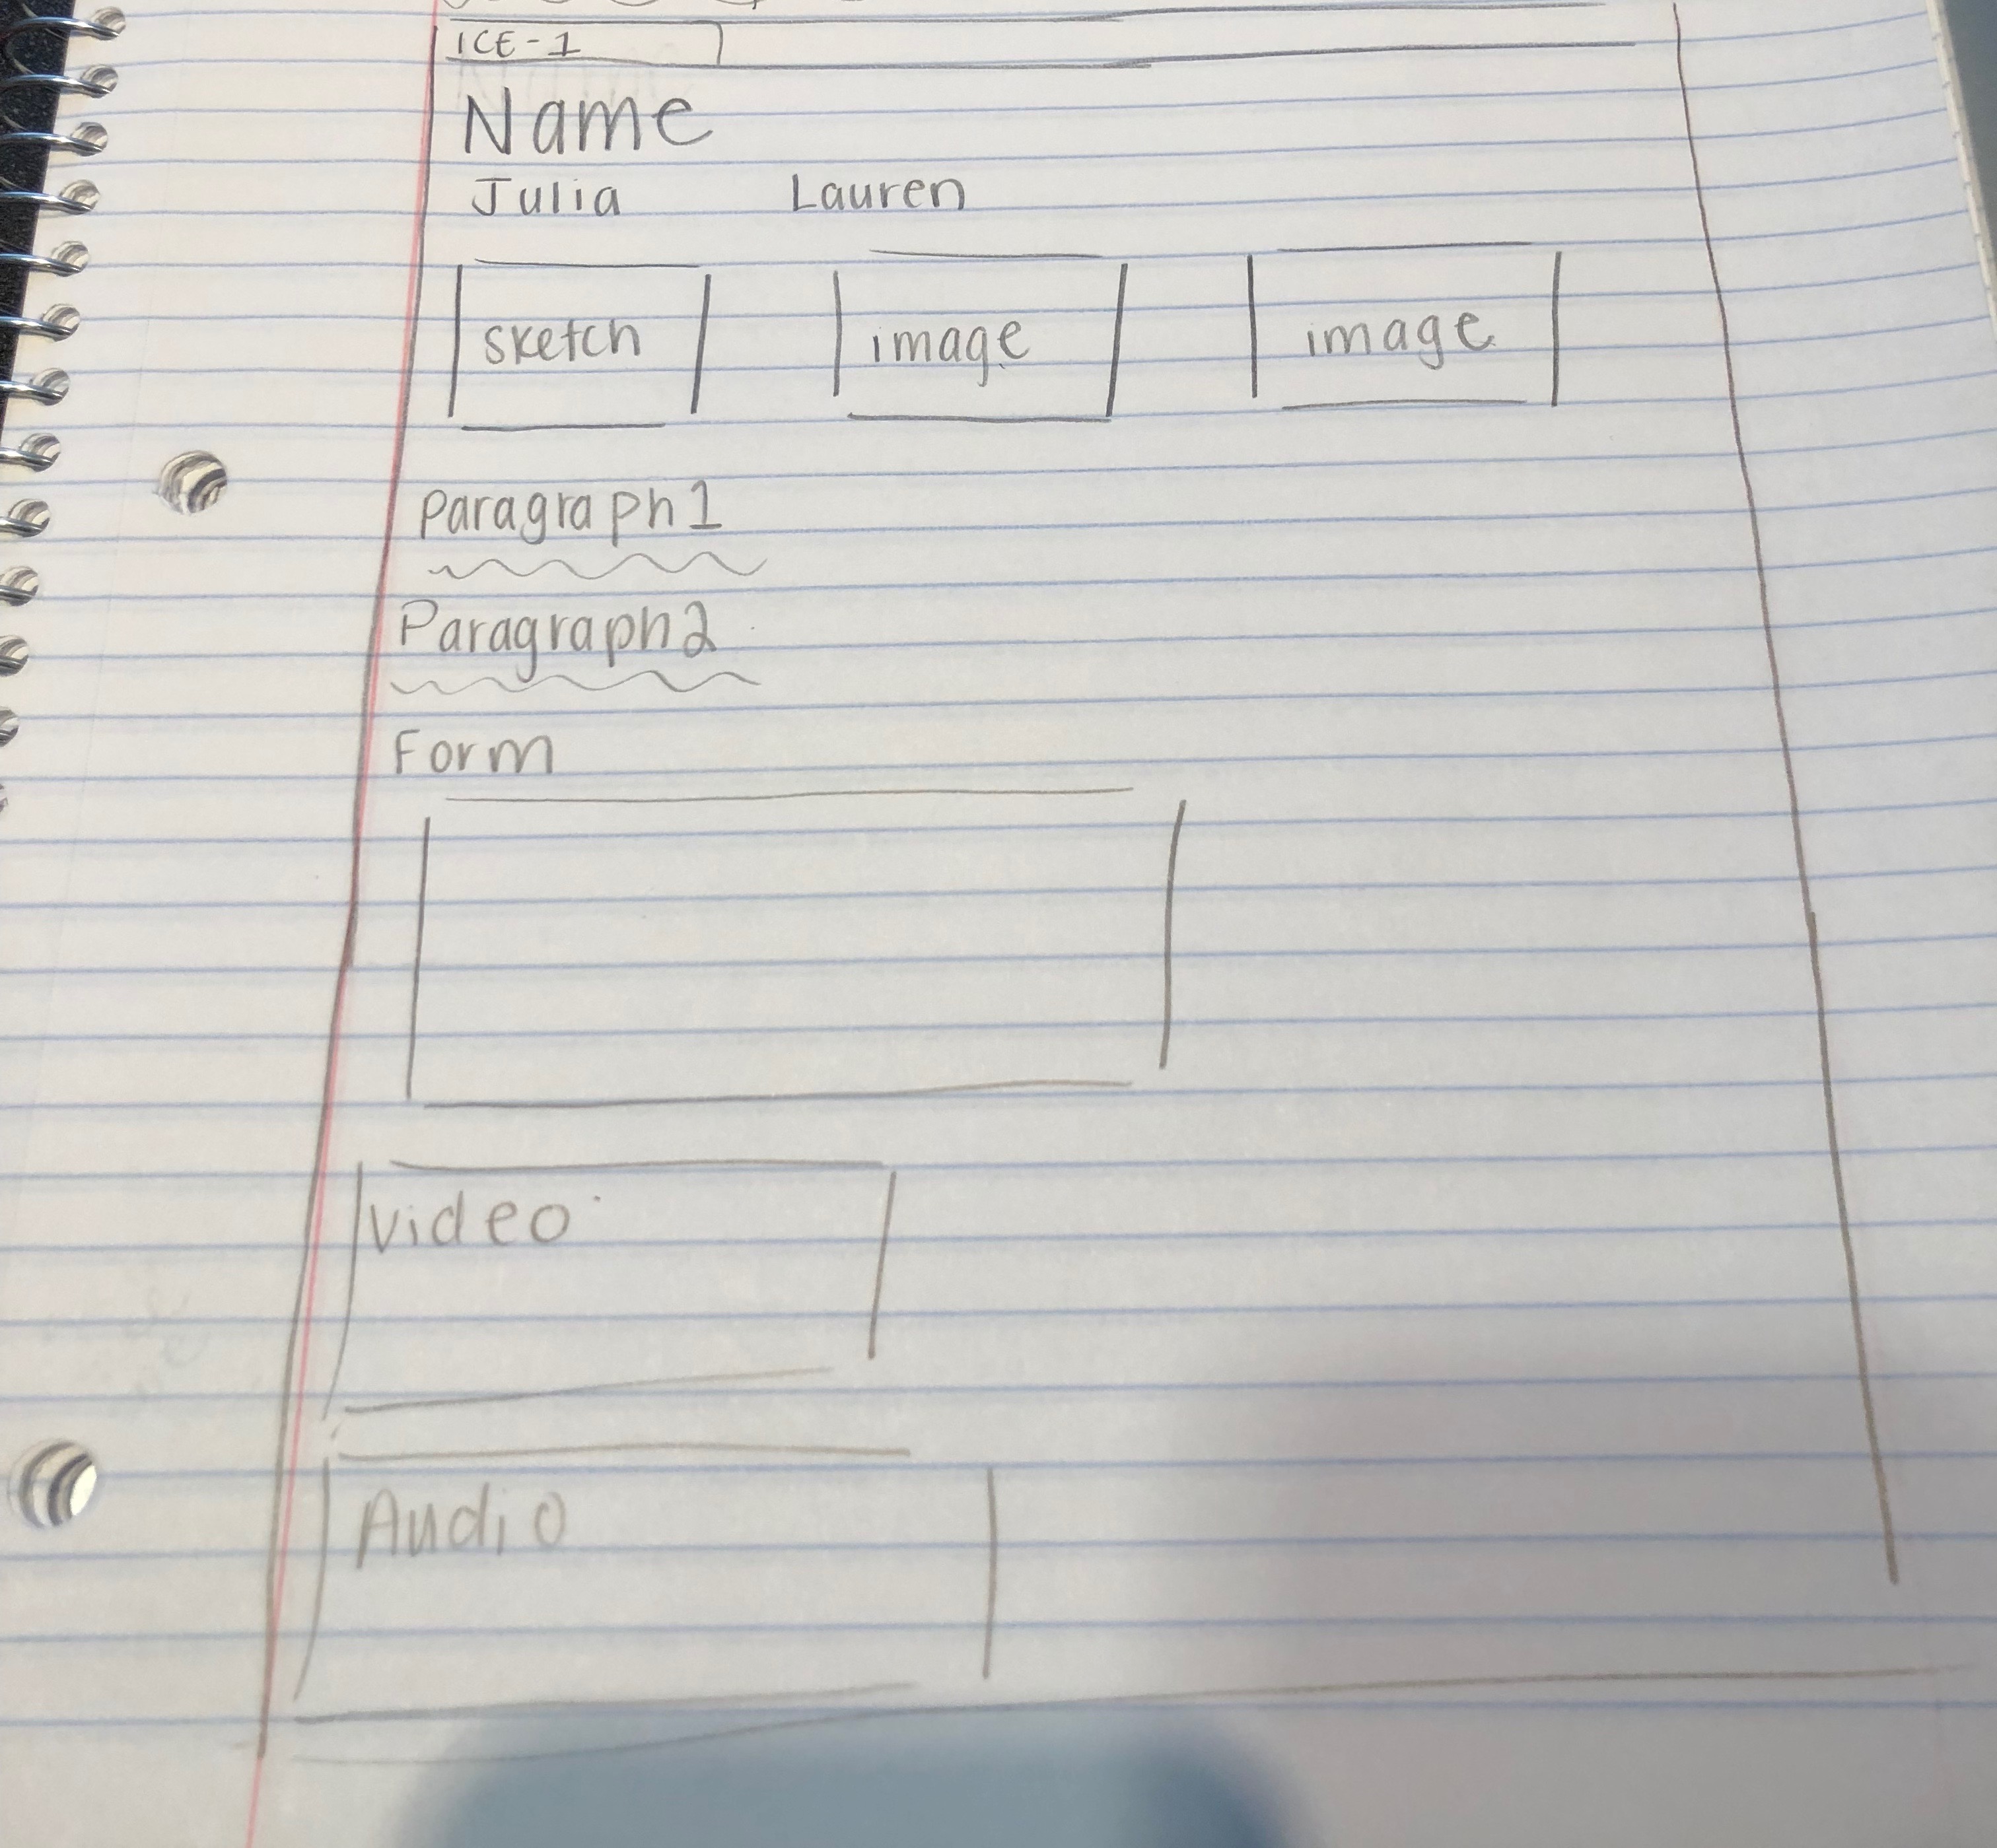 ICE-1
Name
Julia Lauren
sketch image image
paragraph1
Paragraph2
Form
Video
Audio